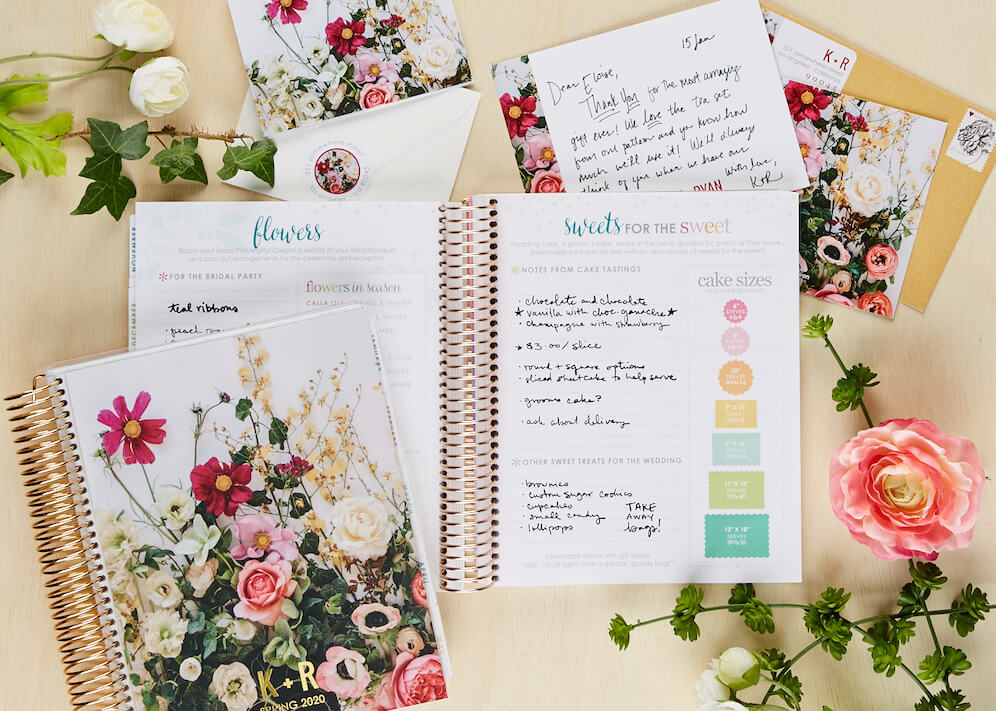 15 Jan
Dear Eloise,
Thank You for the most amazing
gift ever! We love the tea set
from our pattern and you know how
much we'll use it! We'll always
think of you when we have our
with love,
K+R
RYAN
K + R
321 somewhere street
los angeles - california
321 somewhere street
flowers
Bloom your ideas into reality! Create a wishlist of your ideal bouquet
and plan out arrangements for the ceremony and reception.
FOR THE BRIDAL PARTY
teal ribbons
flowers in season
NOVEMBER
DECEMBER
sweets FOR THE sweet
Wedding cake, a groom's cake, treats at the table, goodies for guests as they leave...
personalize your special day with an abundance of sweets for the sweet!
NOTES FROM CAKE TASTINGS
· chocolate and chocolate
★ vanilla with choc. ganache ★
· champagne with strawberry
★ $3.00/slice
· round + square options
· sliced sheetcake to help serve
· grooms cake?
· ask about delivery
OTHER SWEET TREATS FOR THE WEDDING
· brownies
· custom sugar cookies
· cupcakes
· small candy
· lollipops
TAKE
AWAY
bags!
Personalize favors with gift labels
(of all ages) love a special "goody bag!"
cake sizes
6"
SERVES
8"
SERVES
10"
SERVES
7" X 11"
SERVES
9" X 13"
SERVES
11" X 15"
SERVES
12" X 18"
SERVES
K + R
SPRING 2020